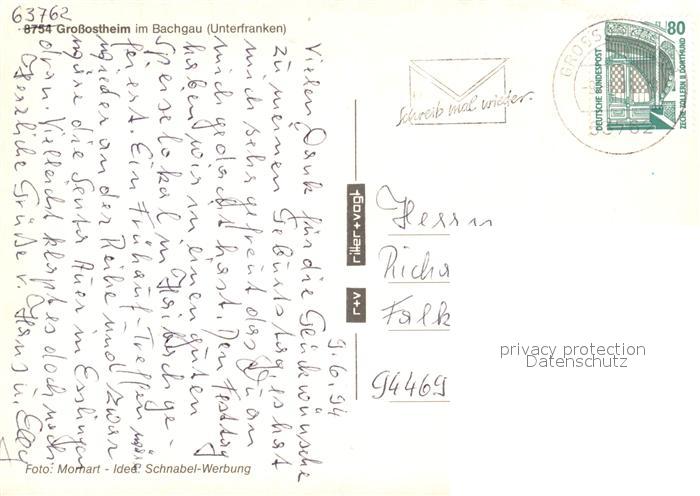 63762
8754 Großostheim im Bachgau (Unterfranken)
9.6.94
Vielen Dank für die Glückwünsche
zu meinem Geburtstag es hat
mich sehr gefreut das Du an
mich gedacht hast. Den Festtag
haben wir in einem guten
Speiselokal in Haibach ge-
feiert. Ein Frühauf-Treffen wäre
wieder an der Reihe und zwar
wäre die Senta Auer in Esslingen
dran. Vielleicht klappt es doch noch
Herzliche Grüße v. Hans u. Elly
Foto: Mornart - Idee: Schnabel-Werbung
ritter+vogt
r+v
Schreib mal wieder
GROSS
63762
80
DEUTSCHE BUNDESPOST
ZECHE ZOLLERN II DORTMUND
Herrn
Richa
Falk
94469
privacy protection
Datenschutz